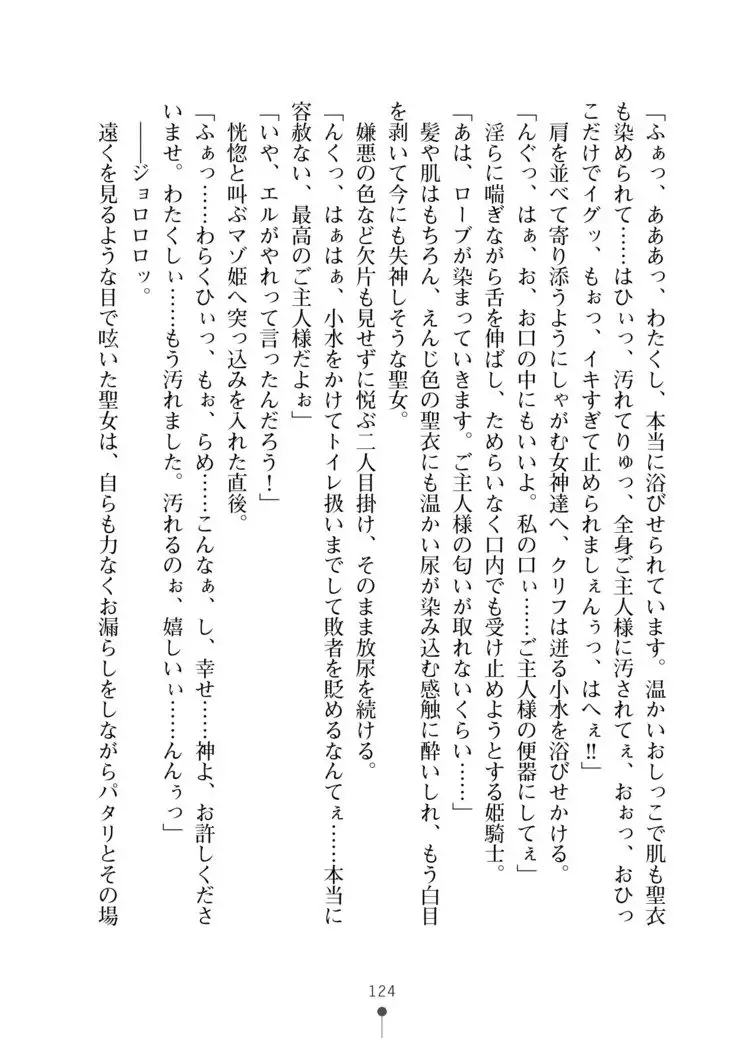 「ふぁっ、あああっ、わたくし、本当に浴びせられています。温かいおしっこで肌も聖衣
も染められて……はひぃっ、汚れてりゅっ、全身ご主人様に汚されてぇ、おぉっ、おひっ
こだけでイグッ、もぉっ、イキすぎて止められましぇんぅっ、はへぇ!!」
肩を並べて寄り添うようにしゃがむ女神達へ、クリフは迸る小水を浴びせかける。
「んぐっ、はぁ、お、お口の中にもいいよ。私の口ぃ……ご主人様の便器にしてぇ」
淫らに喘ぎながら舌を伸ばし、ためらいなく口内でも受け止めようとする姫騎士。
「あは、ローブが染まっていきます。ご主人様の匂いが取れないくらい……」
髪や肌はもちろん、えんじ色の聖衣にも温かい尿が染み込む感触に酔いしれ、もう白目
を剥いて今にも失神しそうな聖女。
嫌悪の色など欠片も見せずに悦ぶ二人目掛け、そのまま放尿を続ける。
「んくっ、はぁはぁ、小水をかけてトイレ扱いまでして敗者を貶めるなんてぇ……本当に
容赦ない、最高のご主人様だよぉ」
「いや、エルがやれって言ったんだろう!」
恍惚と叫ぶマゾ姫へ突っ込みを入れた直後。
「ふぁっ……わらくひぃっ、もぉ、らめ……こんなぁ、し、幸せ……神よ、お許しくださ
いませ。わたくしぃ……もう汚れました。汚れるのぉ、嬉しいぃ……んんぅっ」
――ジョロロロッ。
遠くを見るような目で呟いた聖女は、自らも力なくお漏らしをしながらパタリとその場
124